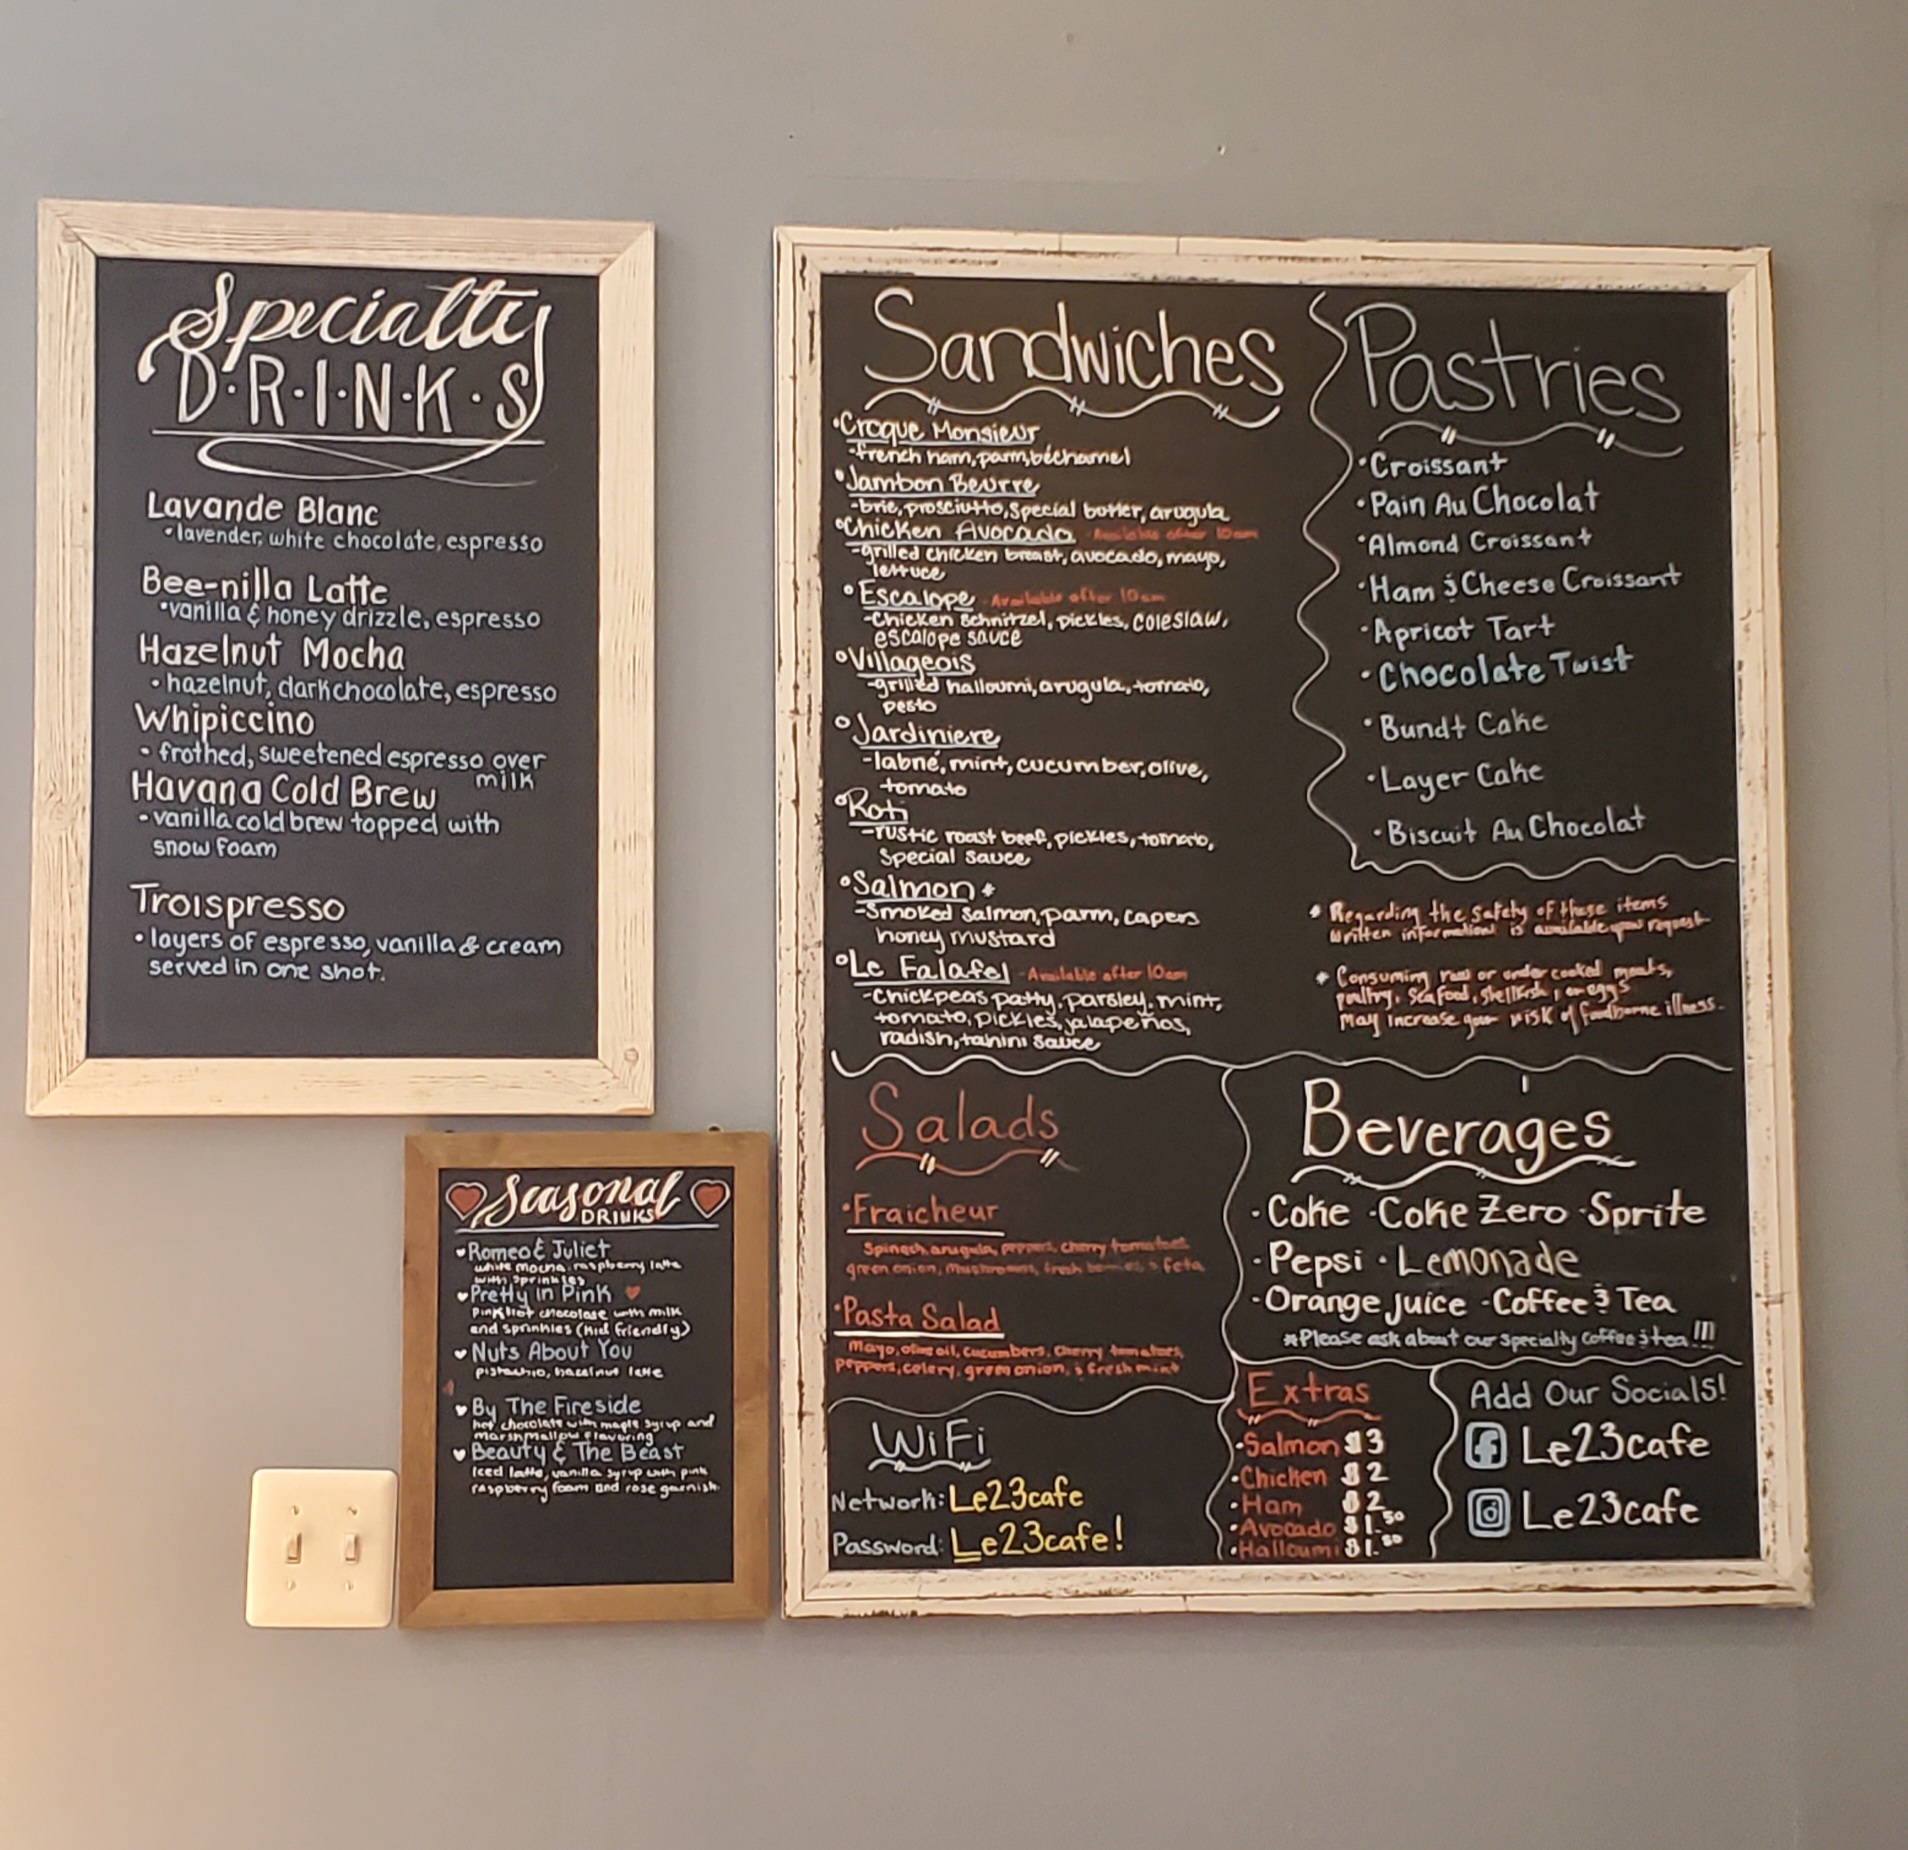 Specialty
D·R·I·N·K·S
Lavande Blanc
• lavender, white chocolate, espresso
Bee-nilla Latte
• vanilla & honey drizzle, espresso
Hazelnut Mocha
• hazelnut, dark chocolate, espresso
Whipiccino
• frothed, sweetened espresso over
milk
Havana Cold Brew
- vanilla cold brew topped with
snow foam
Troispresso
• layers of espresso, vanilla & cream
served in one shot.
Seasonal
DRINKS
Romeo & Juliet
white mocha raspberry latte
with sprinkles
Pretty in Pink
pink hot chocolate with milk
and sprinkles (kid friendly)
Nuts About You
pistachio, hazelnut latte
By The Fireside
hot chocolate with maple syrup and
marshmallow flavoring
Beauty & The Beast
Iced latte, vanilla syrup with pink
raspberry foam and rose garnish.
Sandwiches
• Croque Monsieur
-french ham, parm, béchamel
• Jambon Beurre
-brie, prosciutto, special butter, arugula
• Chicken Avocado - Available after 10am
-grilled chicken breast, avocado, mayo,
lettuce
• Escalope - Available after 10am
-Chicken schnitzel, pickles, coleslaw,
escalope sauce
• Villageois
-grilled halloumi, arugula, tomato,
pesto
• Jardiniere
-labné, mint, cucumber, olive,
tomato
• Roti
-rustic roast beef, pickles, tomato,
Special sauce
• Salmon *
-Smoked salmon, parm, capers
honey mustard
• Le Falafel - Available after 10am
-Chickpeas patty, parsley, mint,
tomato, pickles, jalapeños,
radish, tahini sauce
Pastries
• Croissant
• Pain Au Chocolat
• Almond Croissant
• Ham & Cheese Croissant
• Apricot Tart
• Chocolate Twist
• Bundt Cake
• Layer Cake
• Biscuit Au Chocolat
* Regarding the safety of these items
written information is available upon request
* Consuming raw or under cooked meats,
poultry, Seafood, shellfish, or eggs
May increase your risk of foodborne illness.
Salads
• Fraicheur
Spinach, arugula, peppers, cherry tomatoes
green onion, mushrooms, fresh berries, & feta
• Pasta Salad
Mayo, olive oil, cucumbers, cherry tomatoes,
peppers, celery, green onion, & fresh mint
Beverages
· Coke · Coke Zero · Sprite
· Pepsi · Lemonade
- Orange juice - Coffee & Tea
*Please ask about our specialty coffee & tea!!!
WiFi
Network: Le23cafe
Password: Le23cafe!
Extras
• Salmon $3
• Chicken $2
• Ham $2
• Avocado $1.50
• Halloumi $1.50
Add Our Socials!
f Le23cafe
Le23cafe